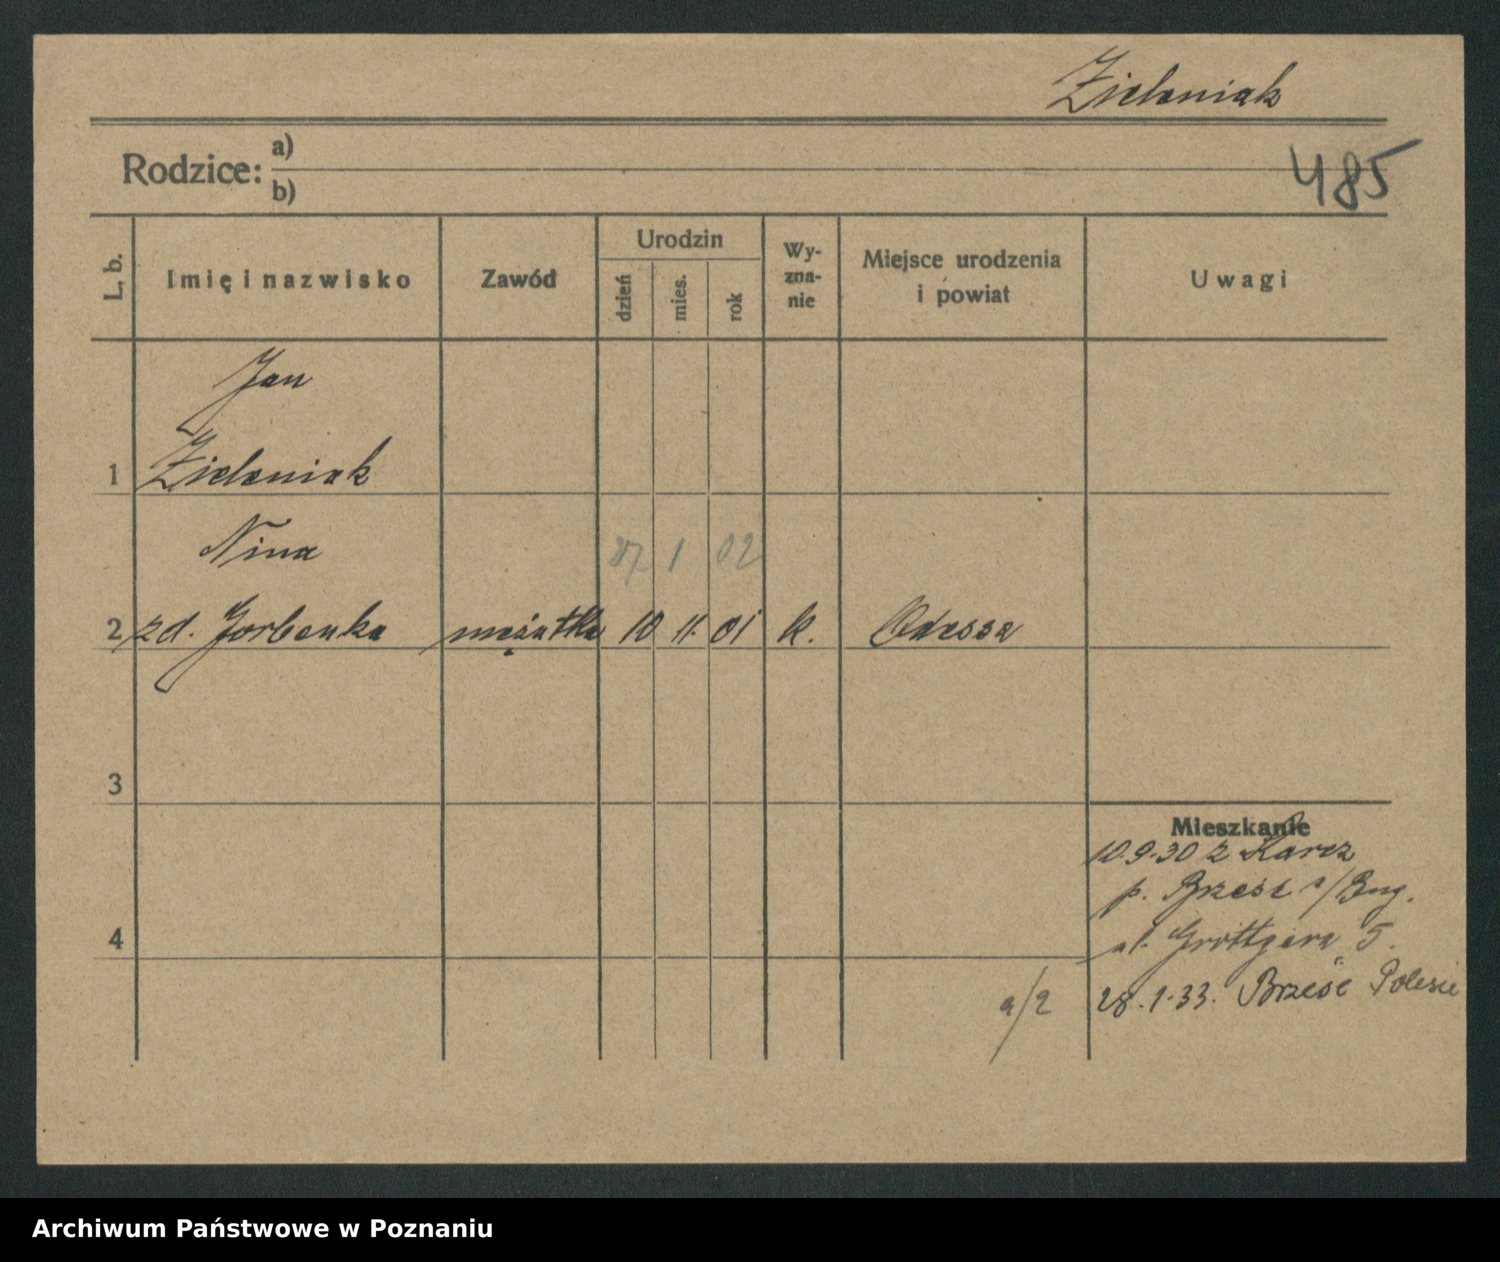 Zieleniak
485
Rodzice: a)
b)
L. b.
Imię i nazwisko
Zawód
Urodzin
dzień
mies.
rok
Wy-
zna-
nie
Miejsce urodzenia
i powiat
Uwagi
Jan
1 Zieleniak
Nina 27 1 02
2 zd. Gorbenko mężatka 10 11. 01 k. Odessa
3
Mieszkanie
10.9.30 z Karcz
p. Brześć n/Bug.
4
ul. Grottgera 5.
a/2 28.1.33. Brześć Polesie
Archiwum Państwowe w Poznaniu